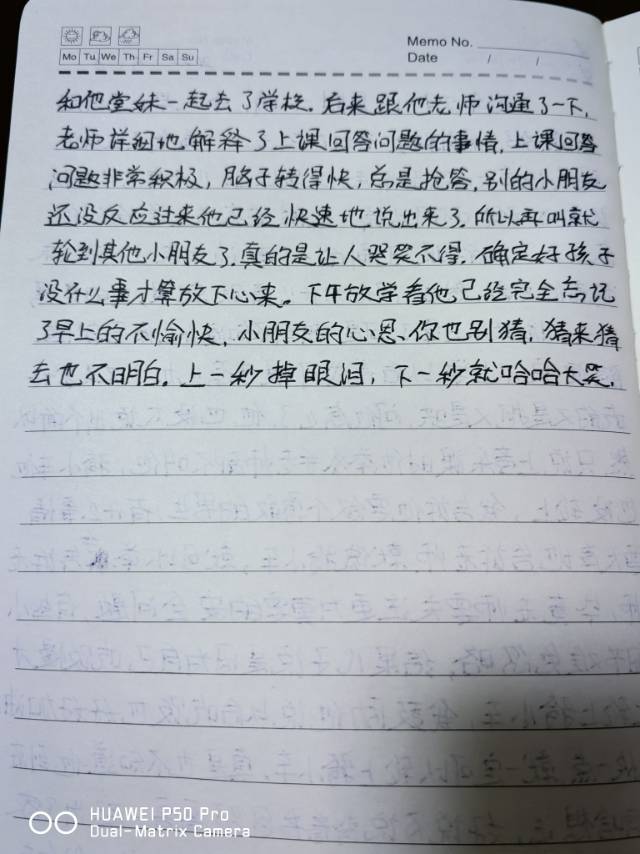 Memo No.
Mo Tu We Th Fr Sa Su
Date / /
和他堂妹一起去了学校。后来跟他老师沟通了一下,
老师详细地解释了上课回答问题的事情,上课回答
问题非常积极,脑子转得快,总是抢答,别的小朋友
还没反应过来他已经快速地说出来了。所以再叫就
轮到其他小朋友了。真的是让人哭笑不得。确定好孩子
没什么事才算放下心来。下午放学看他已经完全忘记
了早上的不愉快,小朋友的心思、你也别猜,猜来猜
去也不明白。上一秒掉眼泪,下一秒就哈哈大笑。
HUAWEI P50 Pro
Dual-Matrix Camera